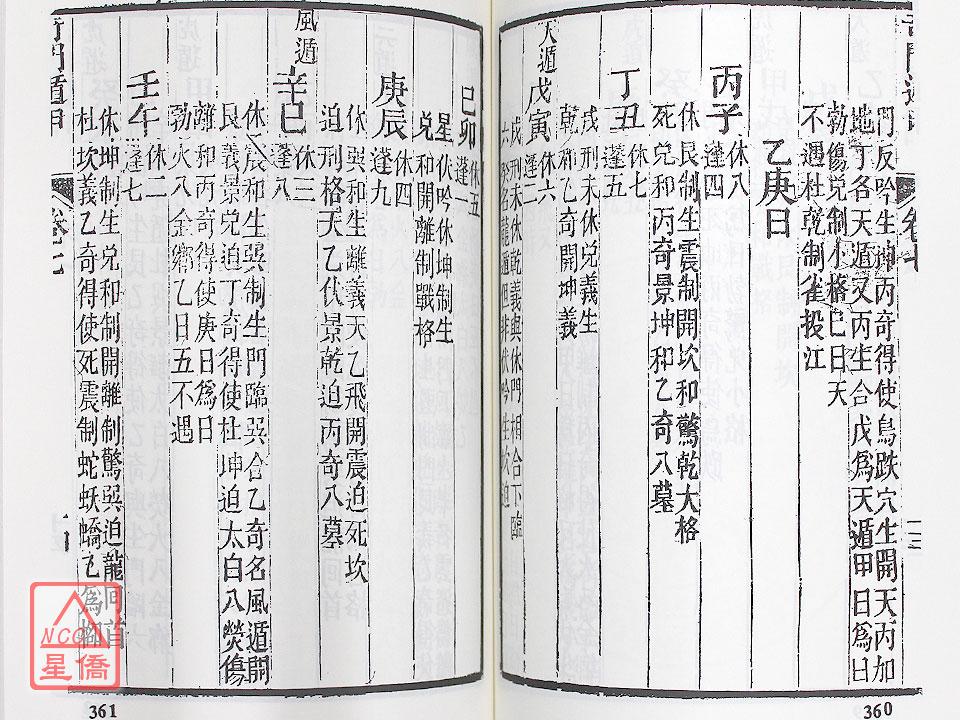 門反吟生神丙奇得使鳥跌穴生開天丙加
地丁各天遁又丙生合戊為天遁甲日為曰
勃傷兌制小格已日天
不遇杜乾制雀投江
乙庚日
丙子
休八
蓬四
休艮制生震制開坎和驚乾大格
死兌和丙奇景坤和乙奇入墓
丁丑
休七
蓬五
戌刑未休兌義生
乾和乙奇開坤義
天遁
戊寅
休六
蓬二
戌刑未休乾義與休門相合下臨
六癸名龍遁但非伏吟生坎迫
己卯
休五
蓬一
星伏吟休坤制生
兌和開離制戰格
庚辰
休四
蓬九
休巽和生離義天乙飛開震迫死坎
迫刑格天乙伏景乾迫丙奇入墓
風遁
辛巳
休三
蓬八
休震和生巽制生門臨巽合乙奇名風遁開
艮義景兌迫丁奇得使杜坤迫太白入熒傷
離和丙奇得使庚日為日
勃火入金鄉乙日五不遇
壬午
休二
蓬七
休坤制生兌和開離制驚巽迫龍回首
杜坎義乙奇得使死震制蛇妖蟜乙為
奇門遁甲
卷七
361
360
NCC
星僑